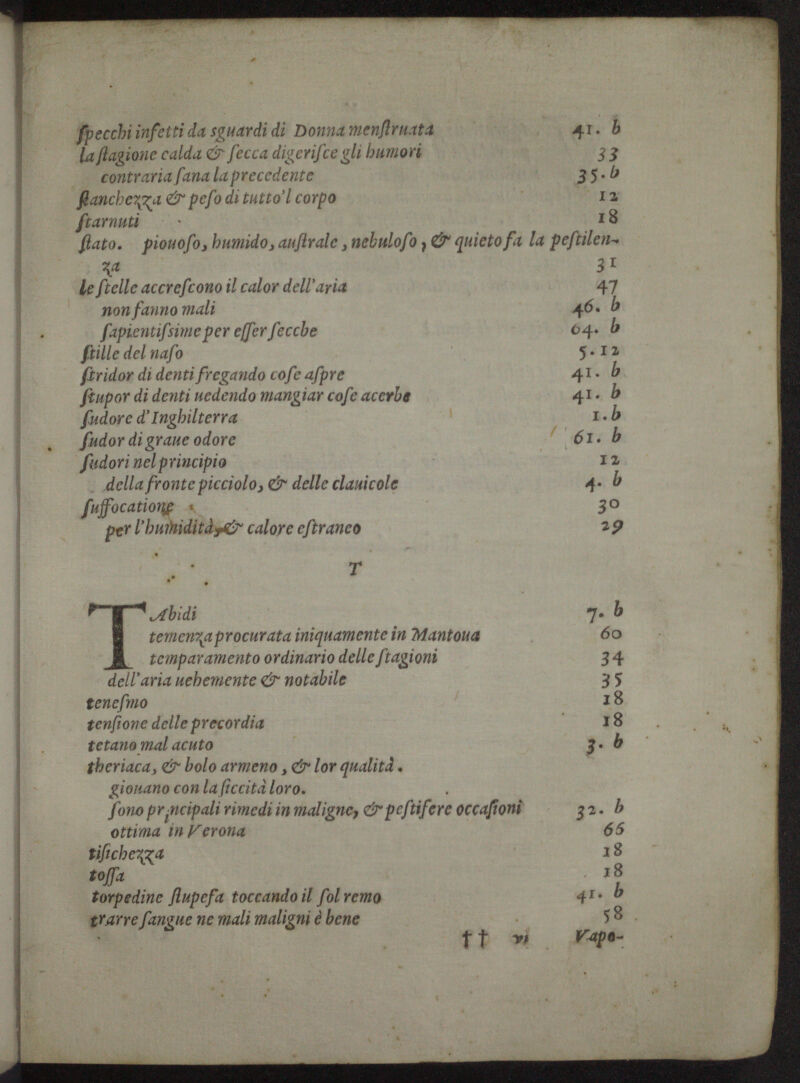 ſpecchi infetti da sguardi di Donna menſtruata 41. b
la ſtagione calda & ſecca digeriſce gli humori 33
contraria ſana la precedente 35. b
ſtanchezza & peſo di tutto'l corpo 12
ſtarnuti 18
ſtato. piouoſo, humido, auſtrale, nebuloſo, & quieto fa la peſtilen-
za 31
le ſtelle accreſcono il calor dell'aria 47
non fanno mali 46. b
ſapientiſsime per eſſer ſecche 64. b
ſtille del naſo 5. 12
ſtridor di denti fregando coſe aſpre 41. b
ſtupor di denti uedendo mangiar coſe acerbe 41. b
ſudore d'Inghilterra 1. b
ſudor di graue odore 61. b
ſudori nel principio 12
della fronte picciolo, & delle clauicole 4. b
ſuffocatione 30
per l'humidità, & calore eſtraneo 29
T
TAbidi 7. b
temenza procurata iniquamente in Mantoua 60
temparamento ordinario delle ſtagioni 34
dell'aria uehemente & notabile 35
teneſmo 18
tenſione delle precordia 18
tetano mal acuto 3. b
theriaca, & bolo armeno, & lor qualità.
giouano con la ſiccità loro.
ſono principali rimedi in maligne, & peſtifere occaſioni 32. b
ottima in Verona 66
tiſichezza 18
toſſa 18
torpedine ſtupefa toccando il ſol remo 41. b
trarre ſangue ne mali maligni è bene 58
†† vi Vapo-